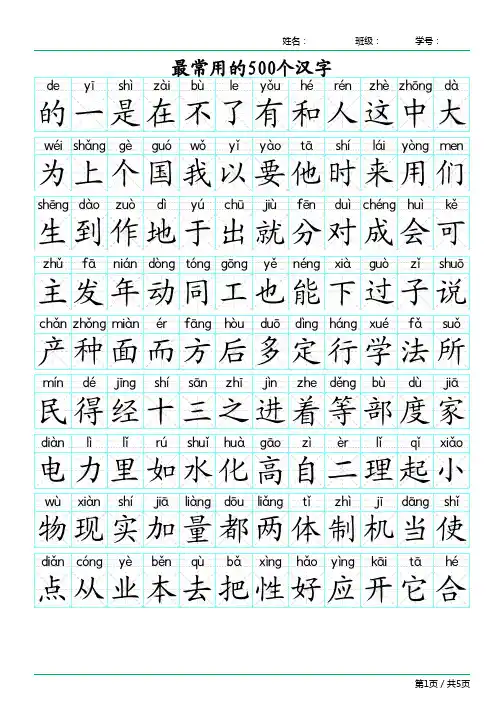 姓名： 班级： 学号：
最常用的500个汉字
de yī shì zài bù le yǒu hé rén zhè zhōng dà
的 一 是 在 不 了 有 和 人 这 中 大
wéi shǎng gè guó wǒ yǐ yào tā shí lái yòng men
为 上 个 国 我 以 要 他 时 来 用 们
shēng dào zuò dì yú chū jiù fēn duì chéng huì kě
生 到 作 地 于 出 就 分 对 成 会 可
zhǔ fā nián dòng tóng gōng yě néng xià guò zǐ shuō
主 发 年 动 同 工 也 能 下 过 子 说
chǎn zhǒng miàn ér fāng hòu duō dìng háng xué fǎ suǒ
产 种 面 而 方 后 多 定 行 学 法 所
mín dé jīng shí sān zhī jìn zhe děng bù dù jiā
民 得 经 十 三 之 进 着 等 部 度 家
diàn lì lǐ rú shuǐ huà gāo zì èr lǐ qǐ xiǎo
电 力 里 如 水 化 高 自 二 理 起 小
wù xiàn shí jiā liàng dōu liǎng tǐ zhì jī dāng shǐ
物 现 实 加 量 都 两 体 制 机 当 使
diǎn cóng yè běn qù bǎ xìng hǎo yìng kāi tā hé
点 从 业 本 去 把 性 好 应 开 它 合
第1页 / 共5页